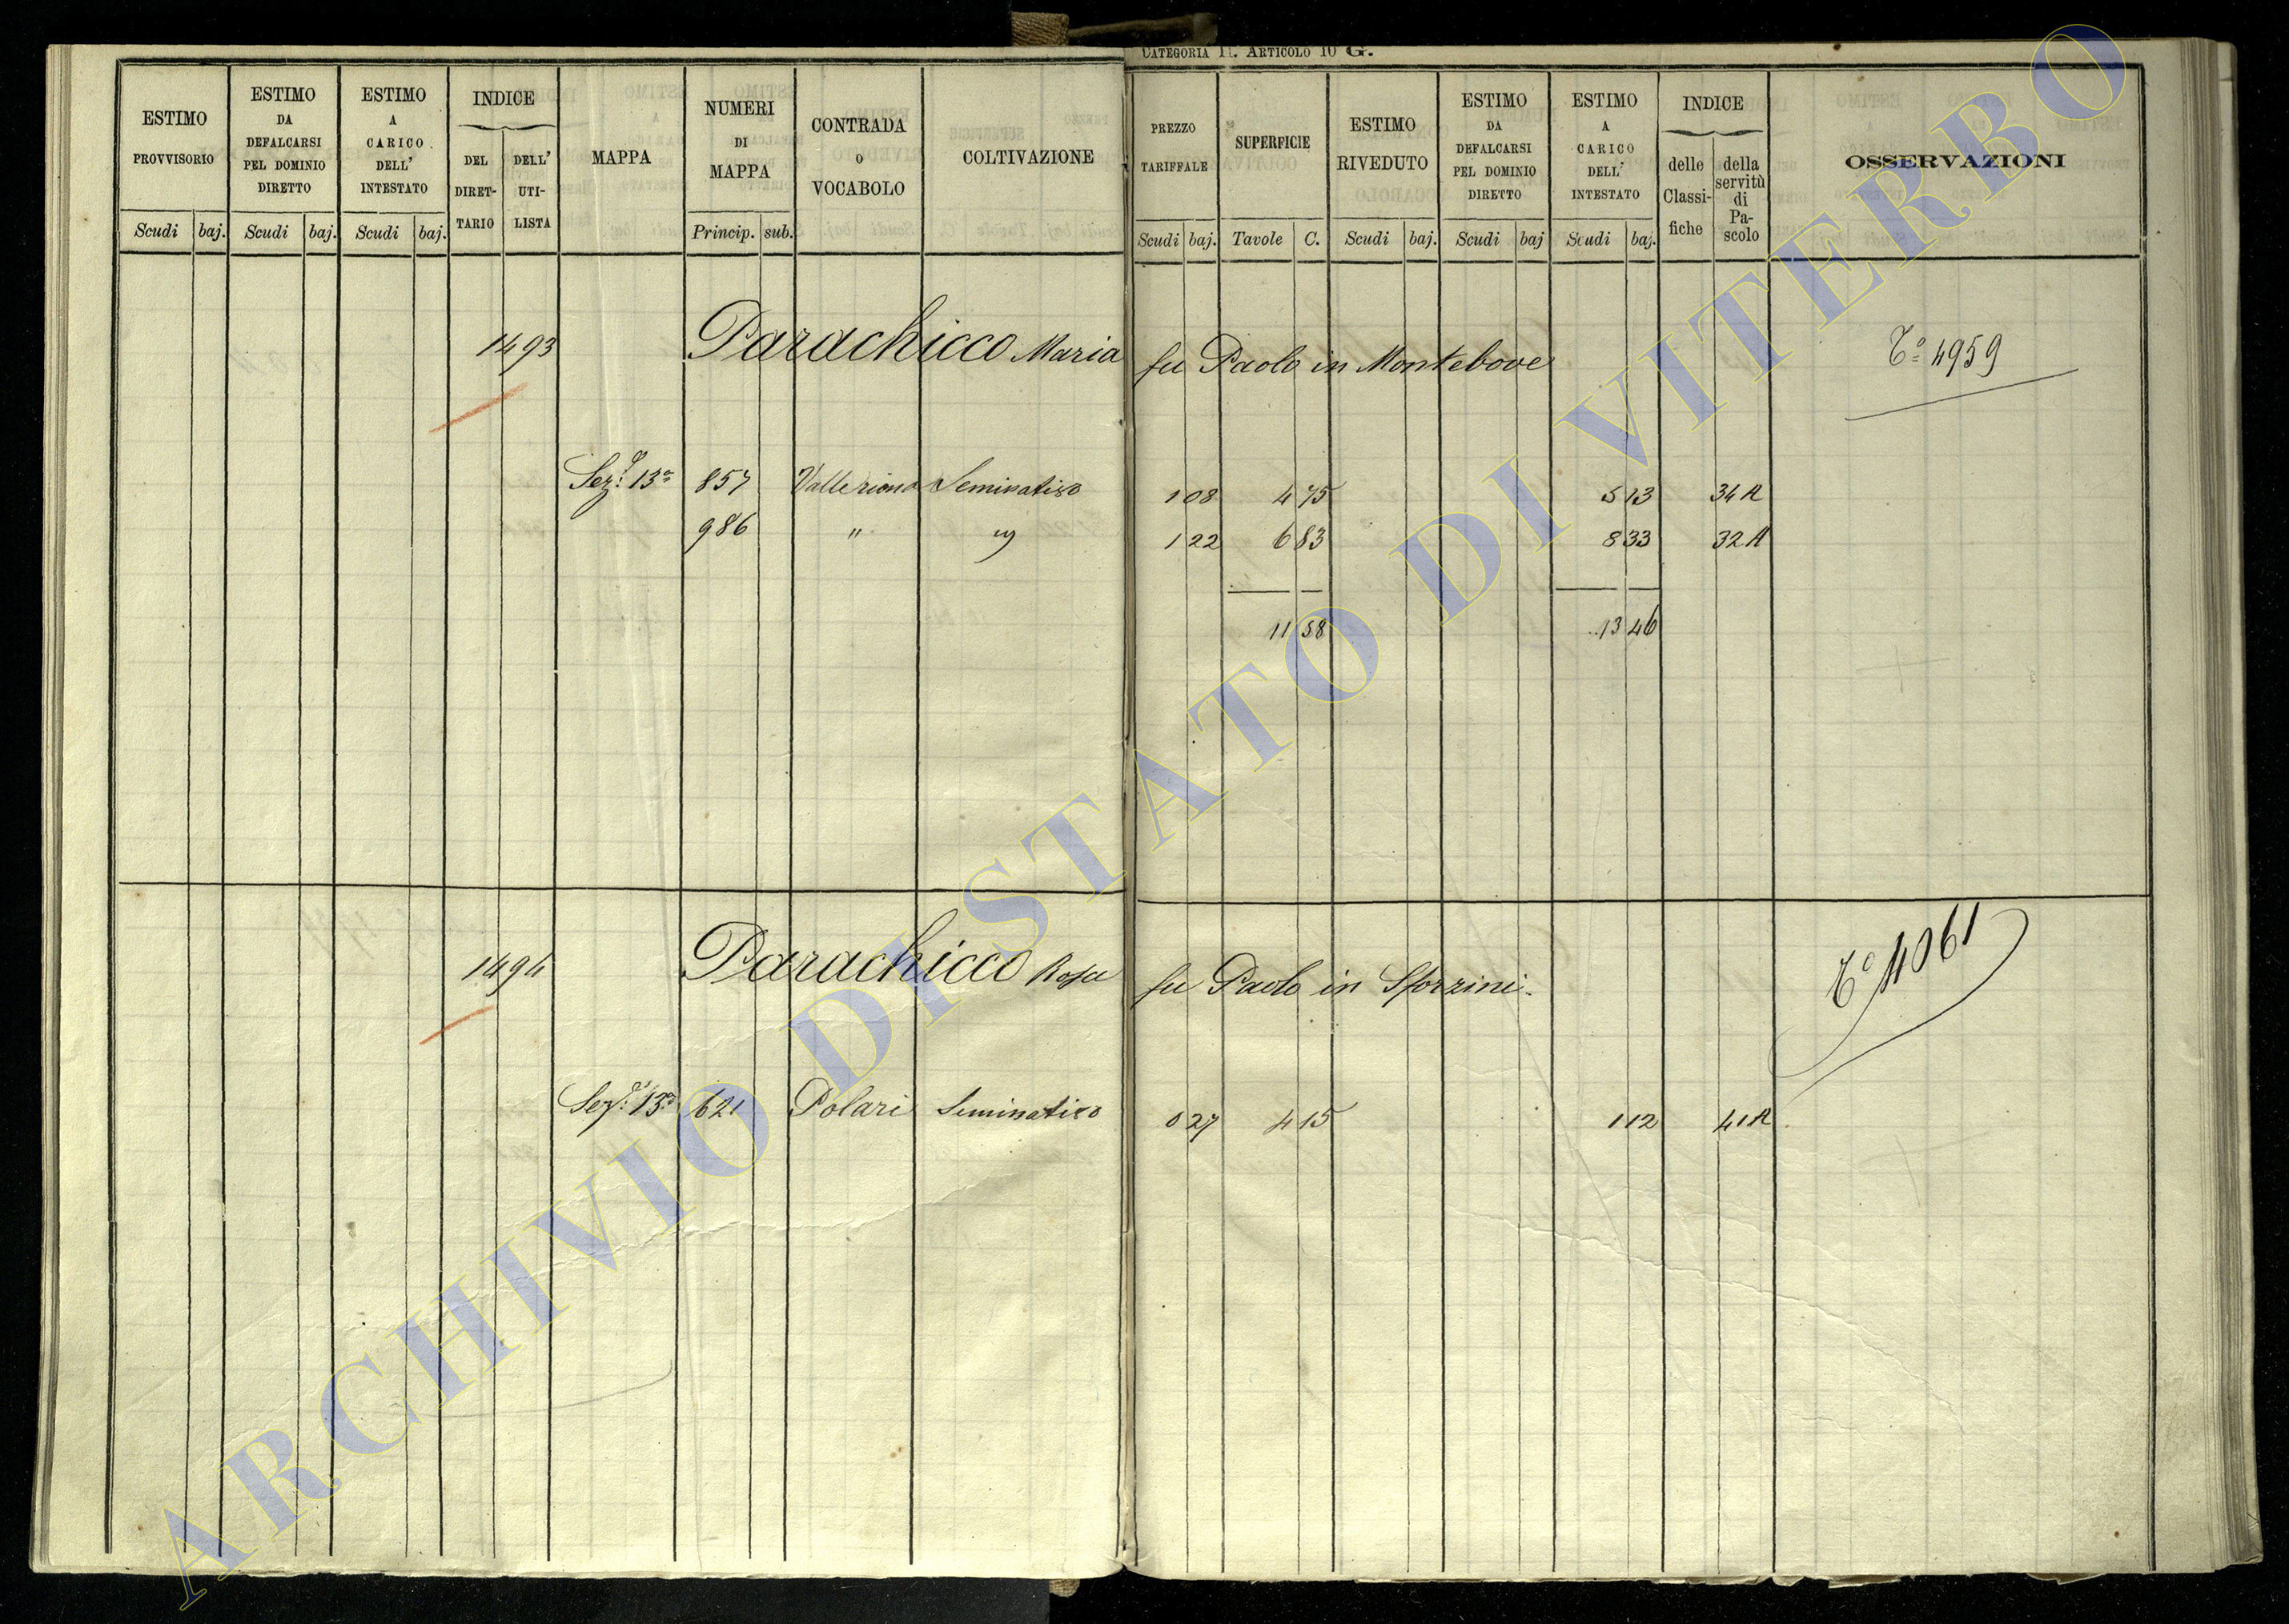 CATEGORIA II. ARTICOLO 10 G.
ESTIMO PROVVISORIO
Scudi baj.
ESTIMO DA DEFALCARSI PEL DOMINIO DIRETTO
Scudi baj.
ESTIMO A CARICO DELL' INTESTATO
Scudi baj.
INDICE
DEL DIRET-TARIO
DELL' UTI-LISTA
MAPPA
NUMERI DI MAPPA
Princip. sub.
CONTRADA O VOCABOLO
COLTIVAZIONE
PREZZO TARIFFALE
Scudi baj.
SUPERFICIE
Tavole C.
ESTIMO RIVEDUTO
Scudi baj.
ESTIMO DA DEFALCARSI PEL DOMINIO DIRETTO
Scudi baj
ESTIMO A CARICO DELL' INTESTATO
Scudi baj.
INDICE
delle Classi-fiche
della servitù di Pa-scolo
OSSERVAZIONI
1493 Parachicco Maria fu Paolo in Montebove T.o 4959
Sez.e 13a 857 Valleriana Seminativo 1 08 4 75 5 13 34 A
986 " " 1 22 6 83 8 33 32 A
11 58 13 46
1494 Parachicco Rosa fu Paolo in Sforzini.
Sez.e 13a 621 Polari Seminativo 0 27 4 15 1 12 41 A
ARCHIVIO DI STATO DI VITERBO